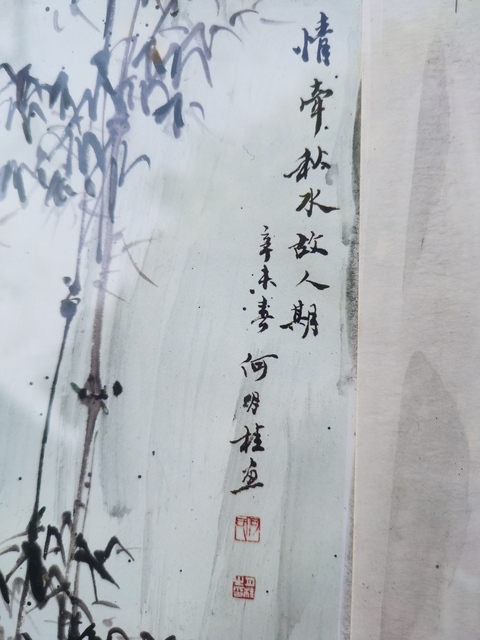 情牵秋水故人期
辛未春 何明桂画